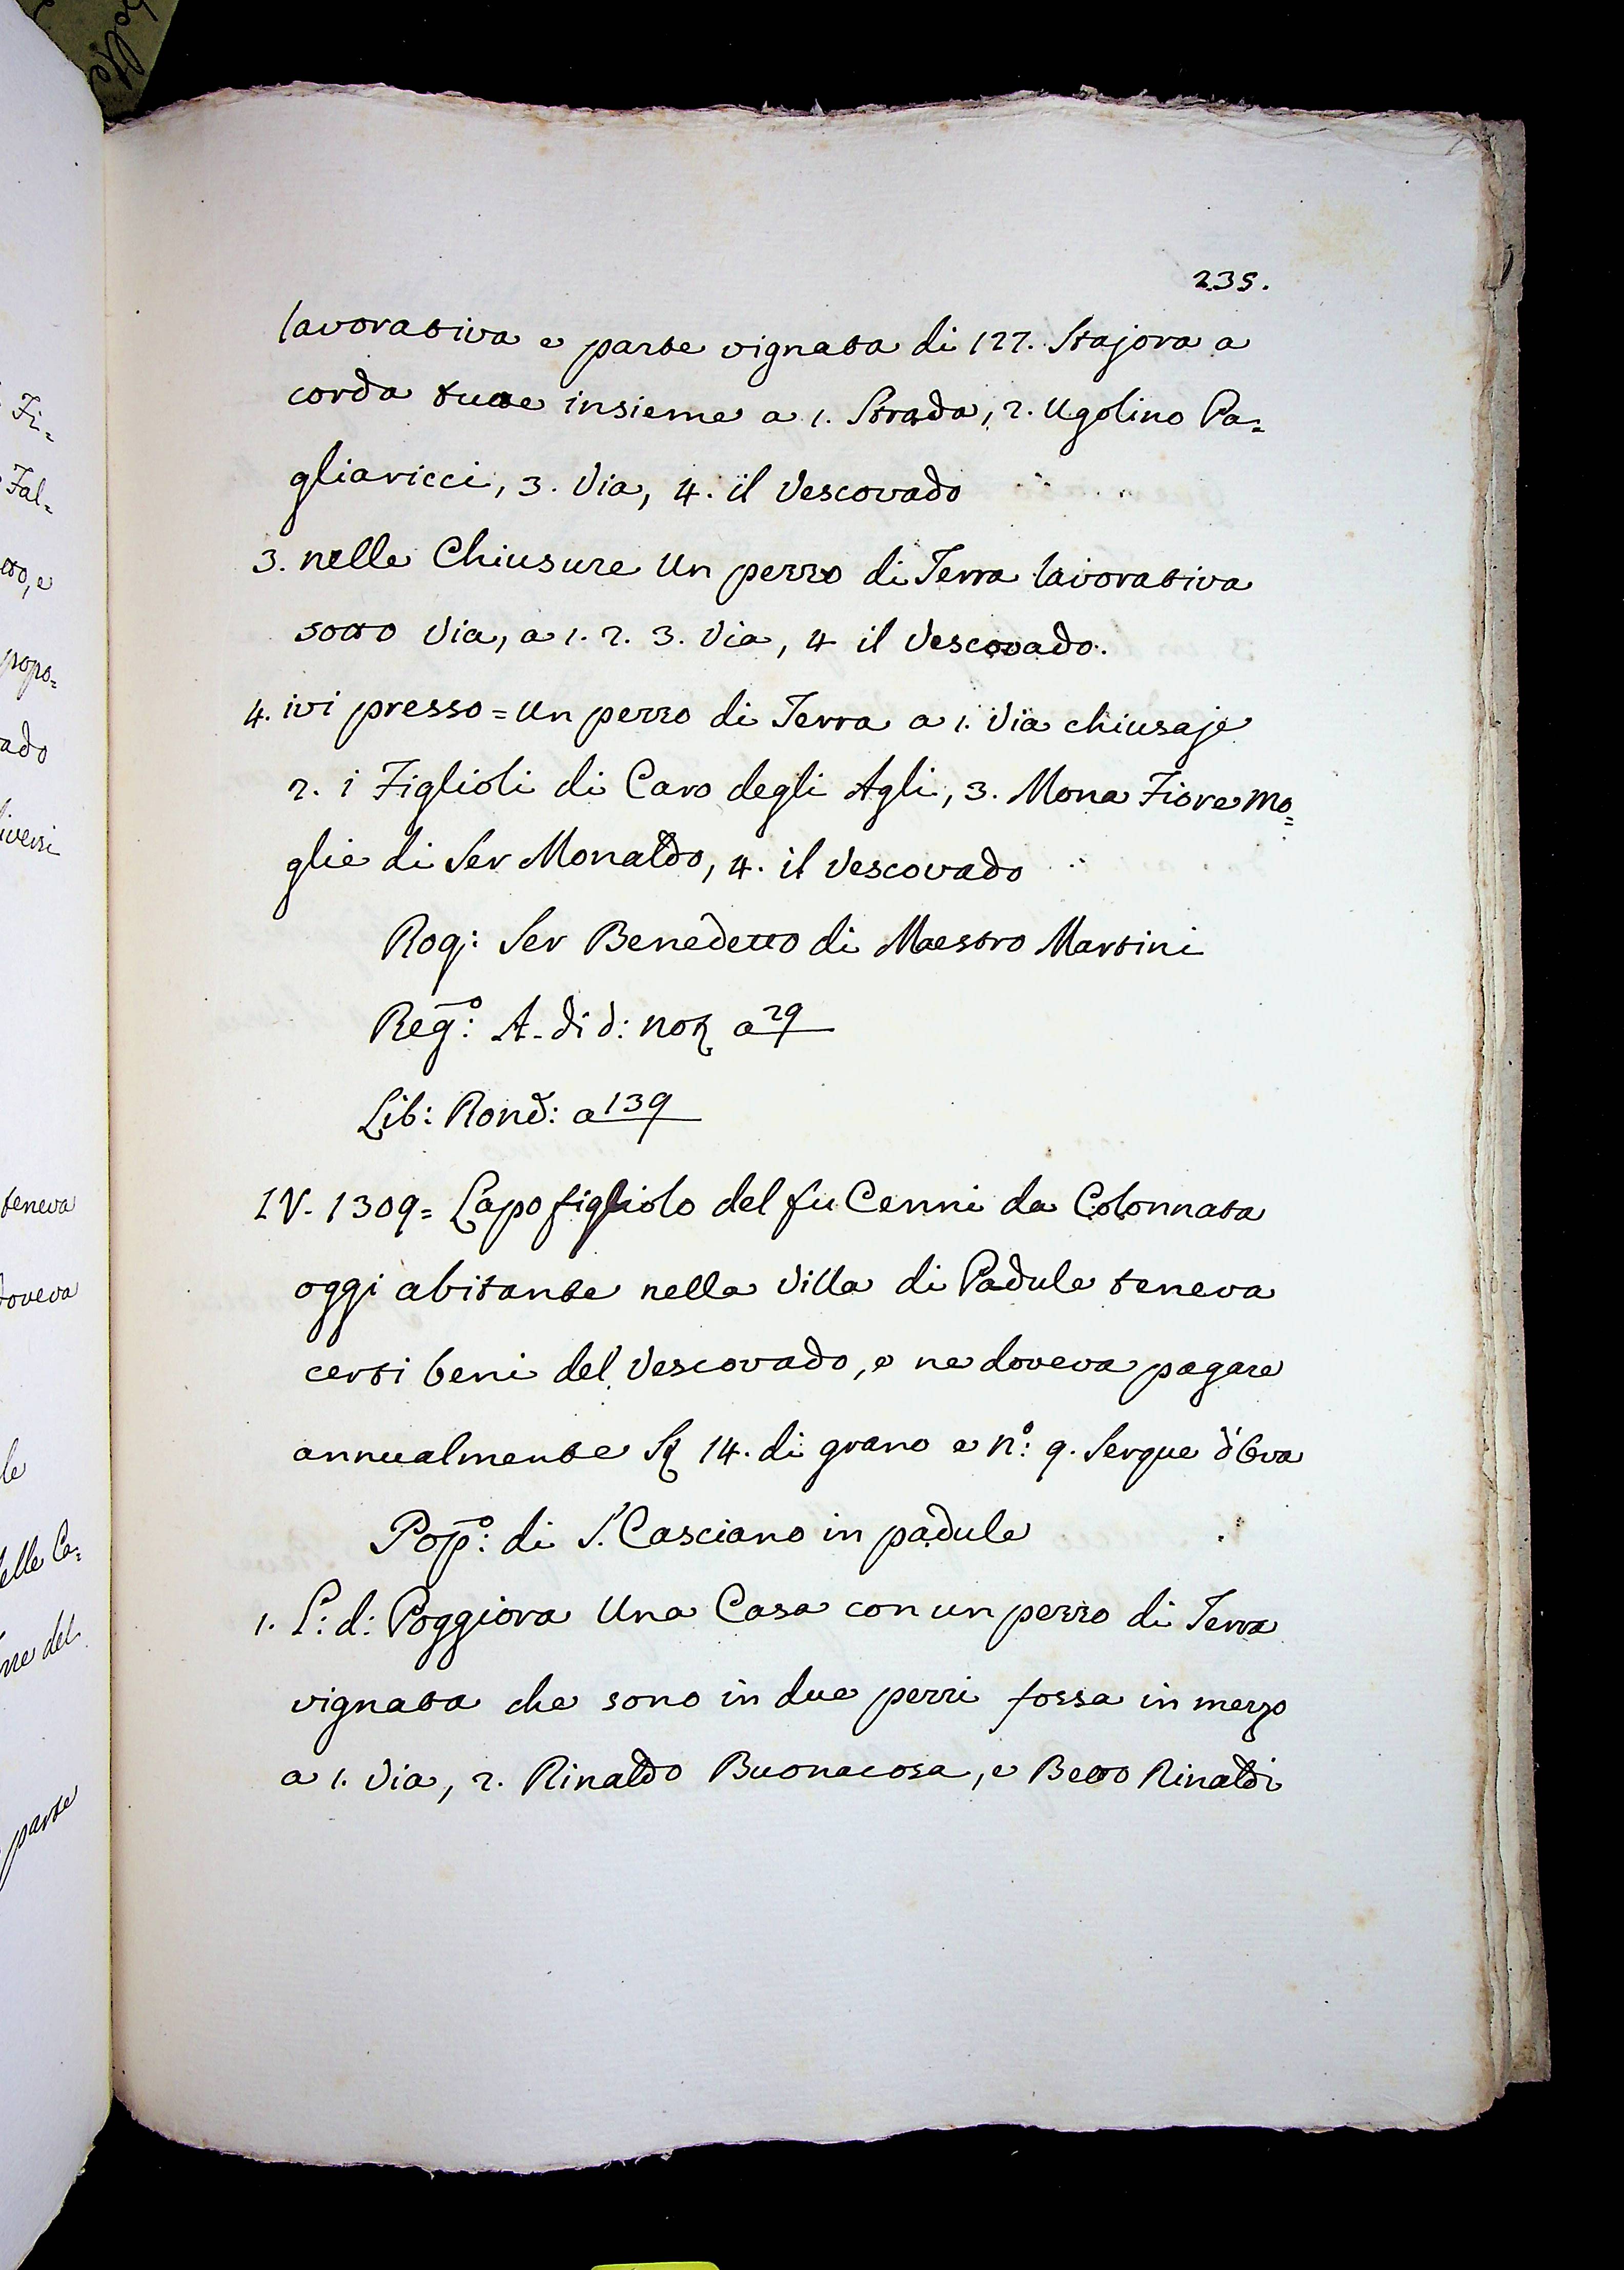 235.
lavorativa e parte vignata di 127. Stajora a
corda tutte insieme a 1. Strada, 2. Ugolino Pa=
gliaricci, 3. Via, 4. il Vescovado
3. nelle Chiusure Un pezzo di Terra lavorativa
sotto Via, a 1. 2. 3. Via, 4 il Vescovado.
4. ivi presso = Un pezzo di Terra a 1. Via chiusaje
2. i Figlioli di Caro degli Agli, 3. Mona Fiore mo=
glie di Ser Monaldo, 4. il Vescovado
Rog: Ser Benedetto di Maestro Martini
Reg:º A. di d: not a 29
Lib: Rond: a 139
IV. 1309= Lapo figliolo del fu Cenni da Colonnata
oggi abitante nella Villa di Padule teneva
certi beni del Vescovado, e ne doveva pagare
annualmente St 14. di grano e nº: 9. Serque d'Ova
Pop:º di S. Casciano in padule
1. L: d: Poggiora Una Casa con un pezzo di Terra
vignata che sono in due pezzi fossa in mezzo
a 1. Via, 2. Rinaldo Buonacosa, e Betto Rinaldi
Fi=
Fal=
tto, e
popo=
ado
iversi
teneva
doveva
le
elle Ca=
rre del
parte